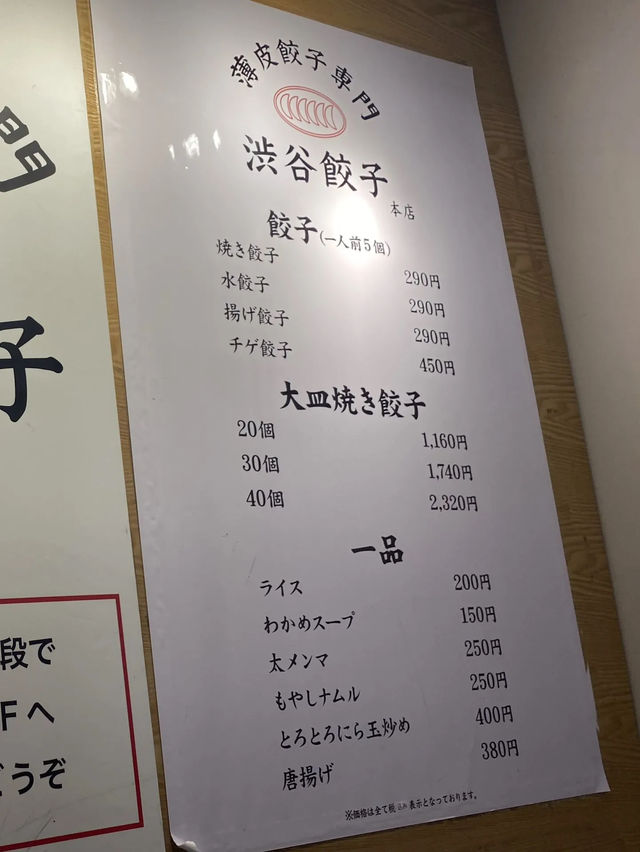 薄皮餃子専門
渋谷餃子
本店
餃子(一人前5個)
焼き餃子 290円
水餃子 290円
揚げ餃子 290円
チゲ餃子 450円
大皿焼き餃子
20個 1,160円
30個 1,740円
40個 2,320円
一品
ライス 200円
わかめスープ 150円
太メンマ 250円
もやしナムル 250円
とろとろにら玉炒め 400円
唐揚げ 380円
※価格は全て税込み表示となっております。
門
子
段で
Fへ
どうぞ